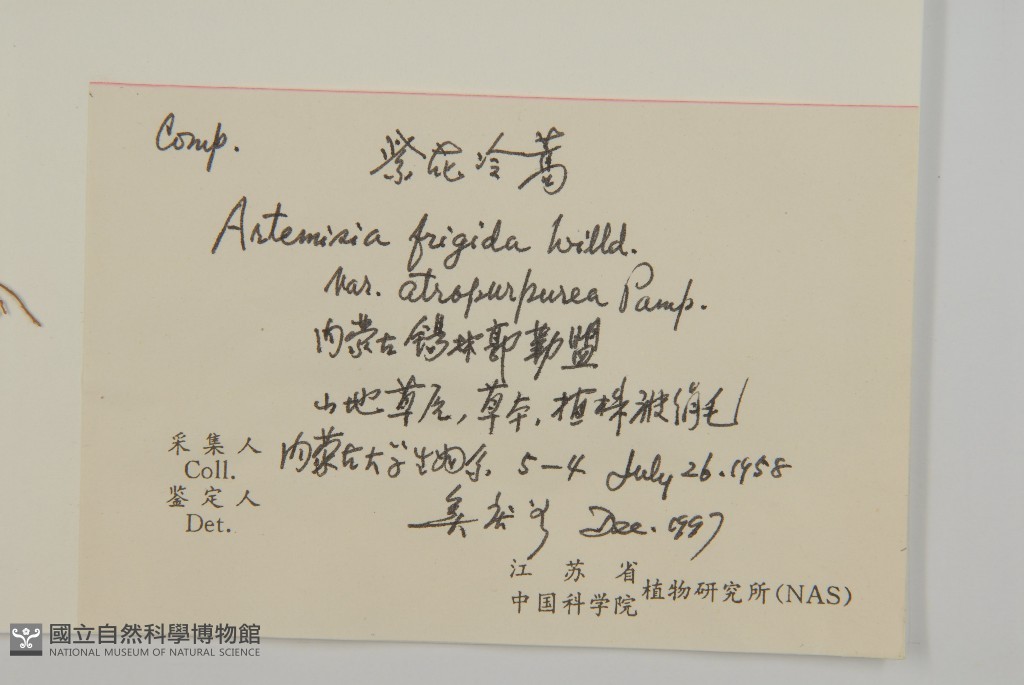 Comp.
紫花冷蒿
Artemisia frigida Willd.
var. atropurpurea Pamp.
内蒙古锡林郭勒盟
山地草原，草本，植株被绢毛
采集人 内蒙古大学生物系 5-4 July 26.1958
Coll.
鉴定人
Det. Dec. 1997
江苏省
中国科学院 植物研究所(NAS)
國立自然科學博物館
NATIONAL MUSEUM OF NATURAL SCIENCE